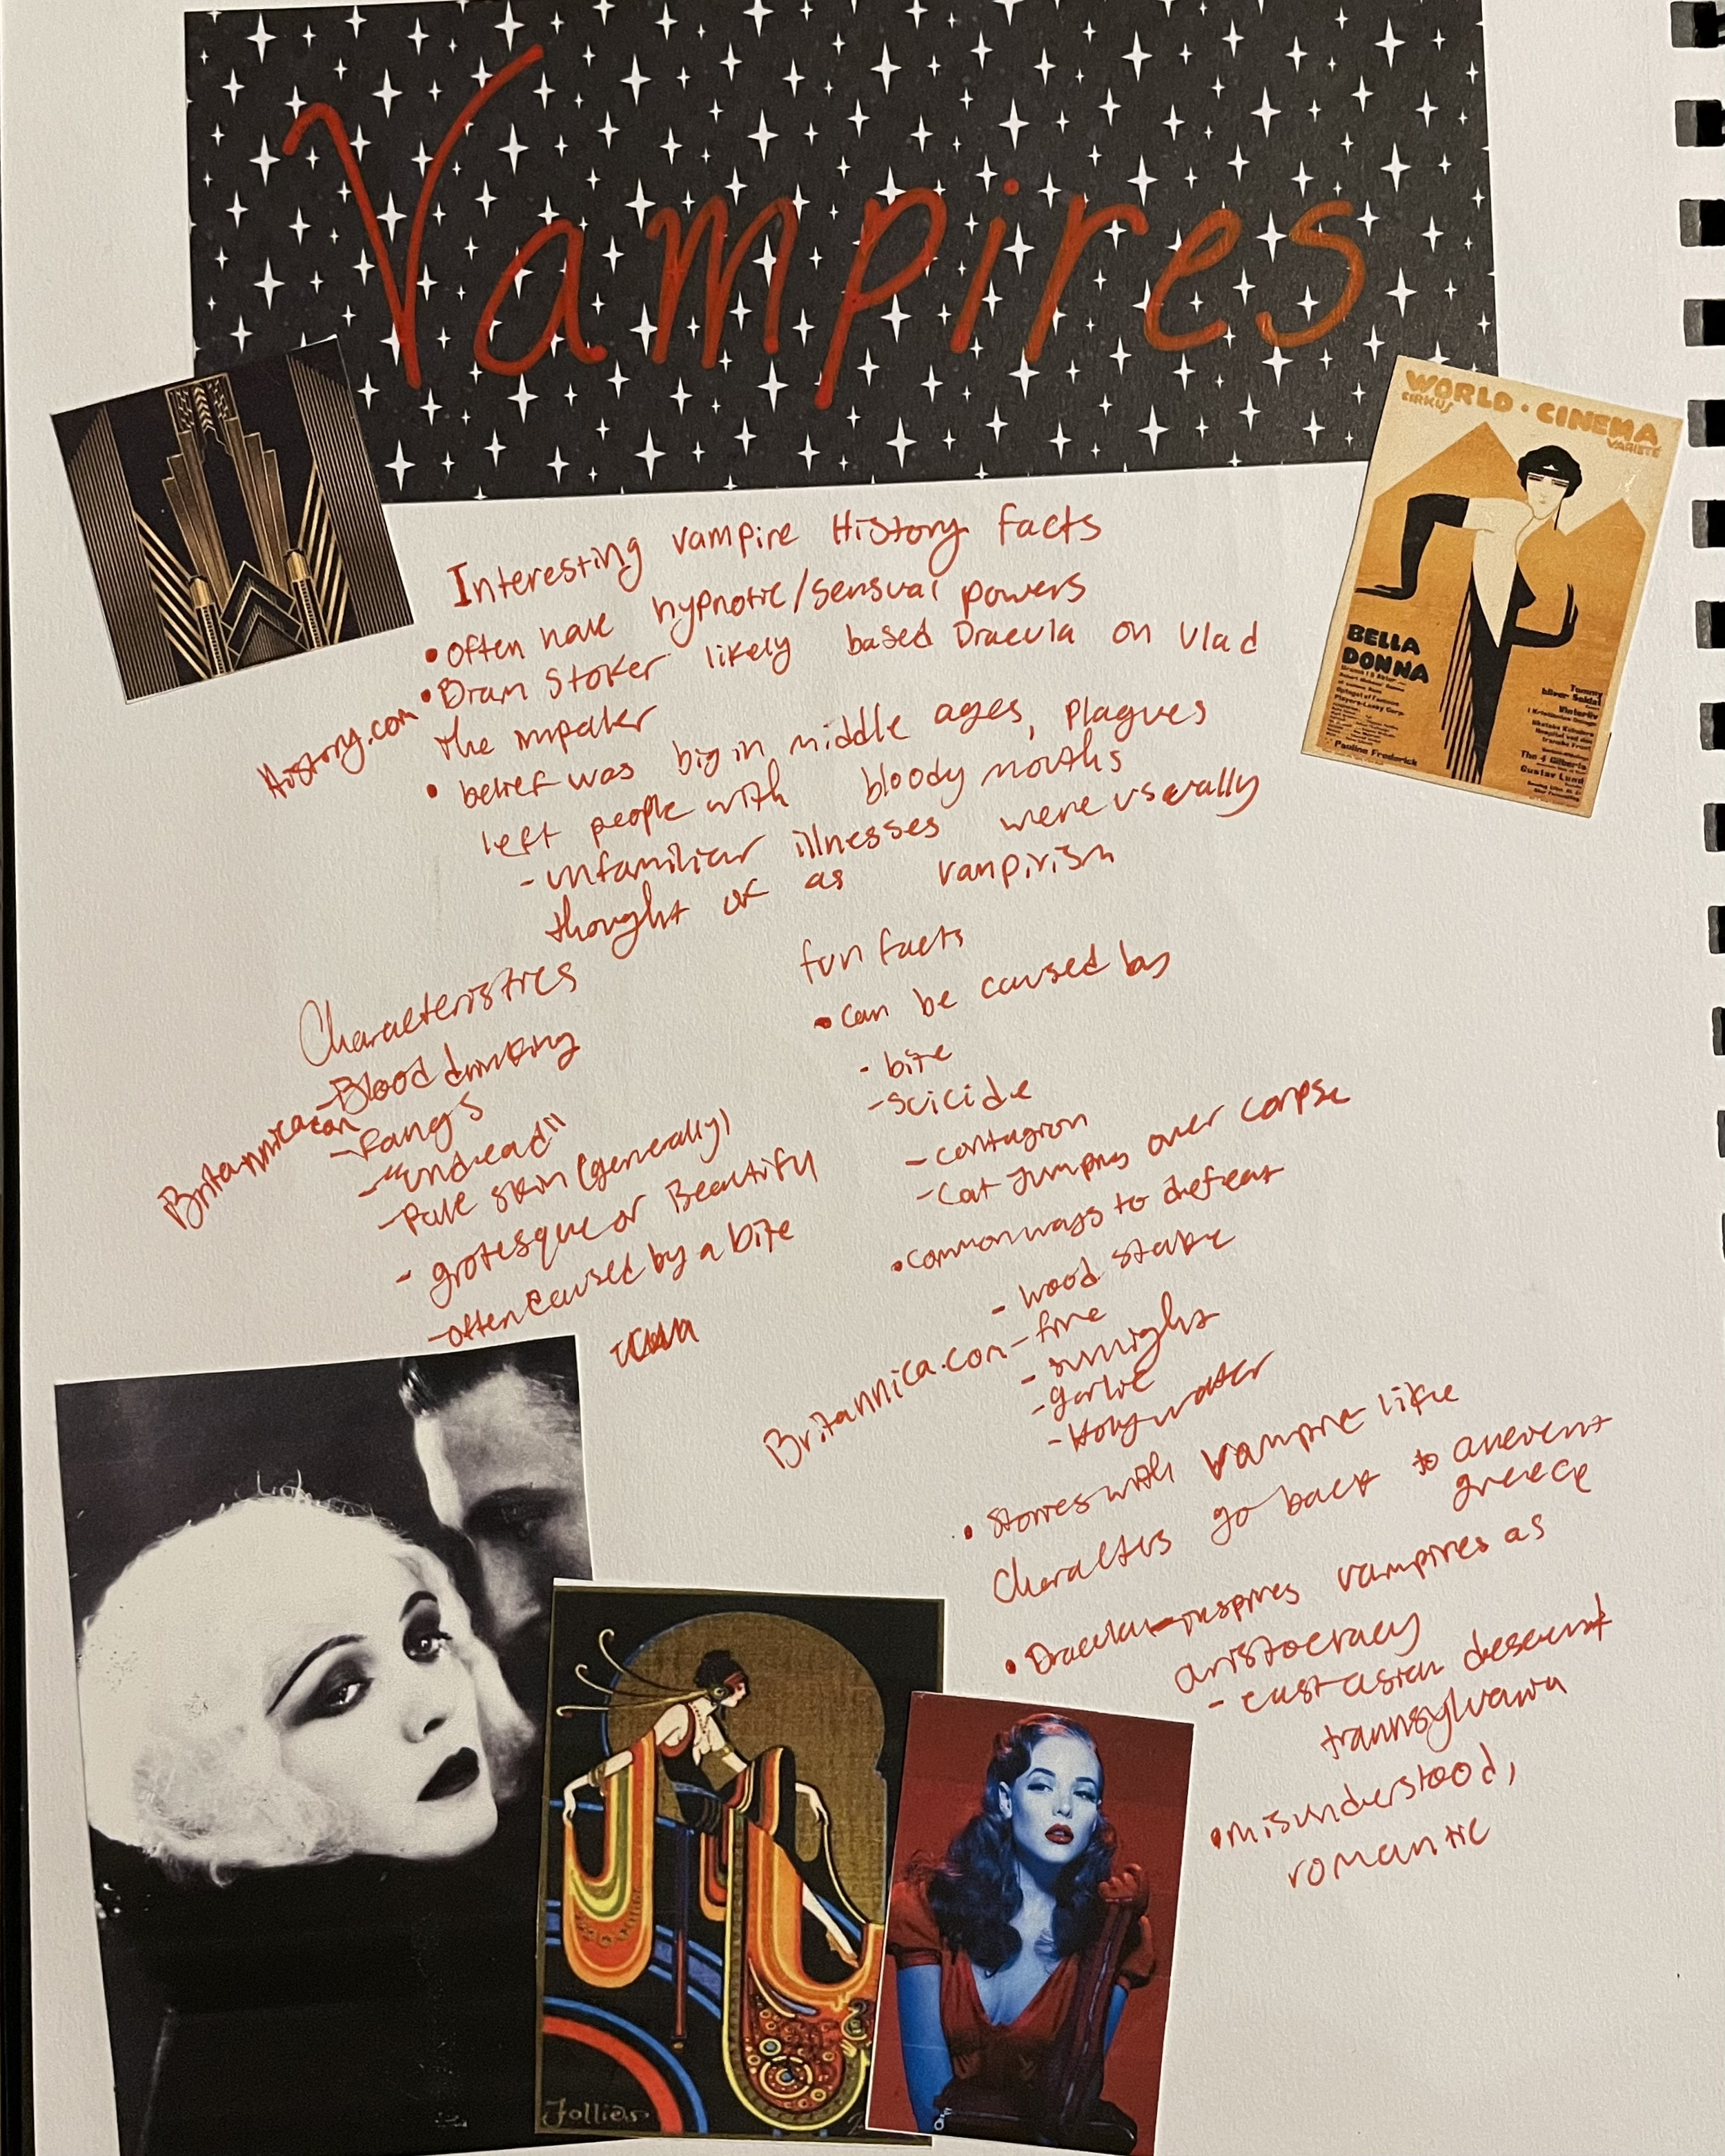 Vampires
WORLD · CINEMA
CIRKUS
VARIETÉ
BELLA
DONNA
Pauline Frederick
The 4 Gilberts
Gustav Lund
Interesting vampire History facts
• often have hypnotic/sensual powers
• Bram Stoker likely based Dracula on Vlad
the impaler
History.com
• belief was big in middle ages, plagues
left people with bloody mouths
- unfamiliar illnesses were usually
thought of as vampirism
Characteristics
- Blood drinking
- Fangs
- "undead"
- Pale skin (generally)
- grotesque or Beautiful
- often caused by a bite
Britannica.com
fun facts
• can be caused by
- bite
- suicide
- contagion
- Cat Jumping over corpse
• common ways to defeat
- wood stake
- fire
- sunlight
- garlic
- Holy water
Britannica.com
• Stories with vampire like
characters go back to ancient
greece
• Dracula inspires vampires as
aristocracy
- east asian descent
trannsylvania
• misunderstood,
romantic
Follies